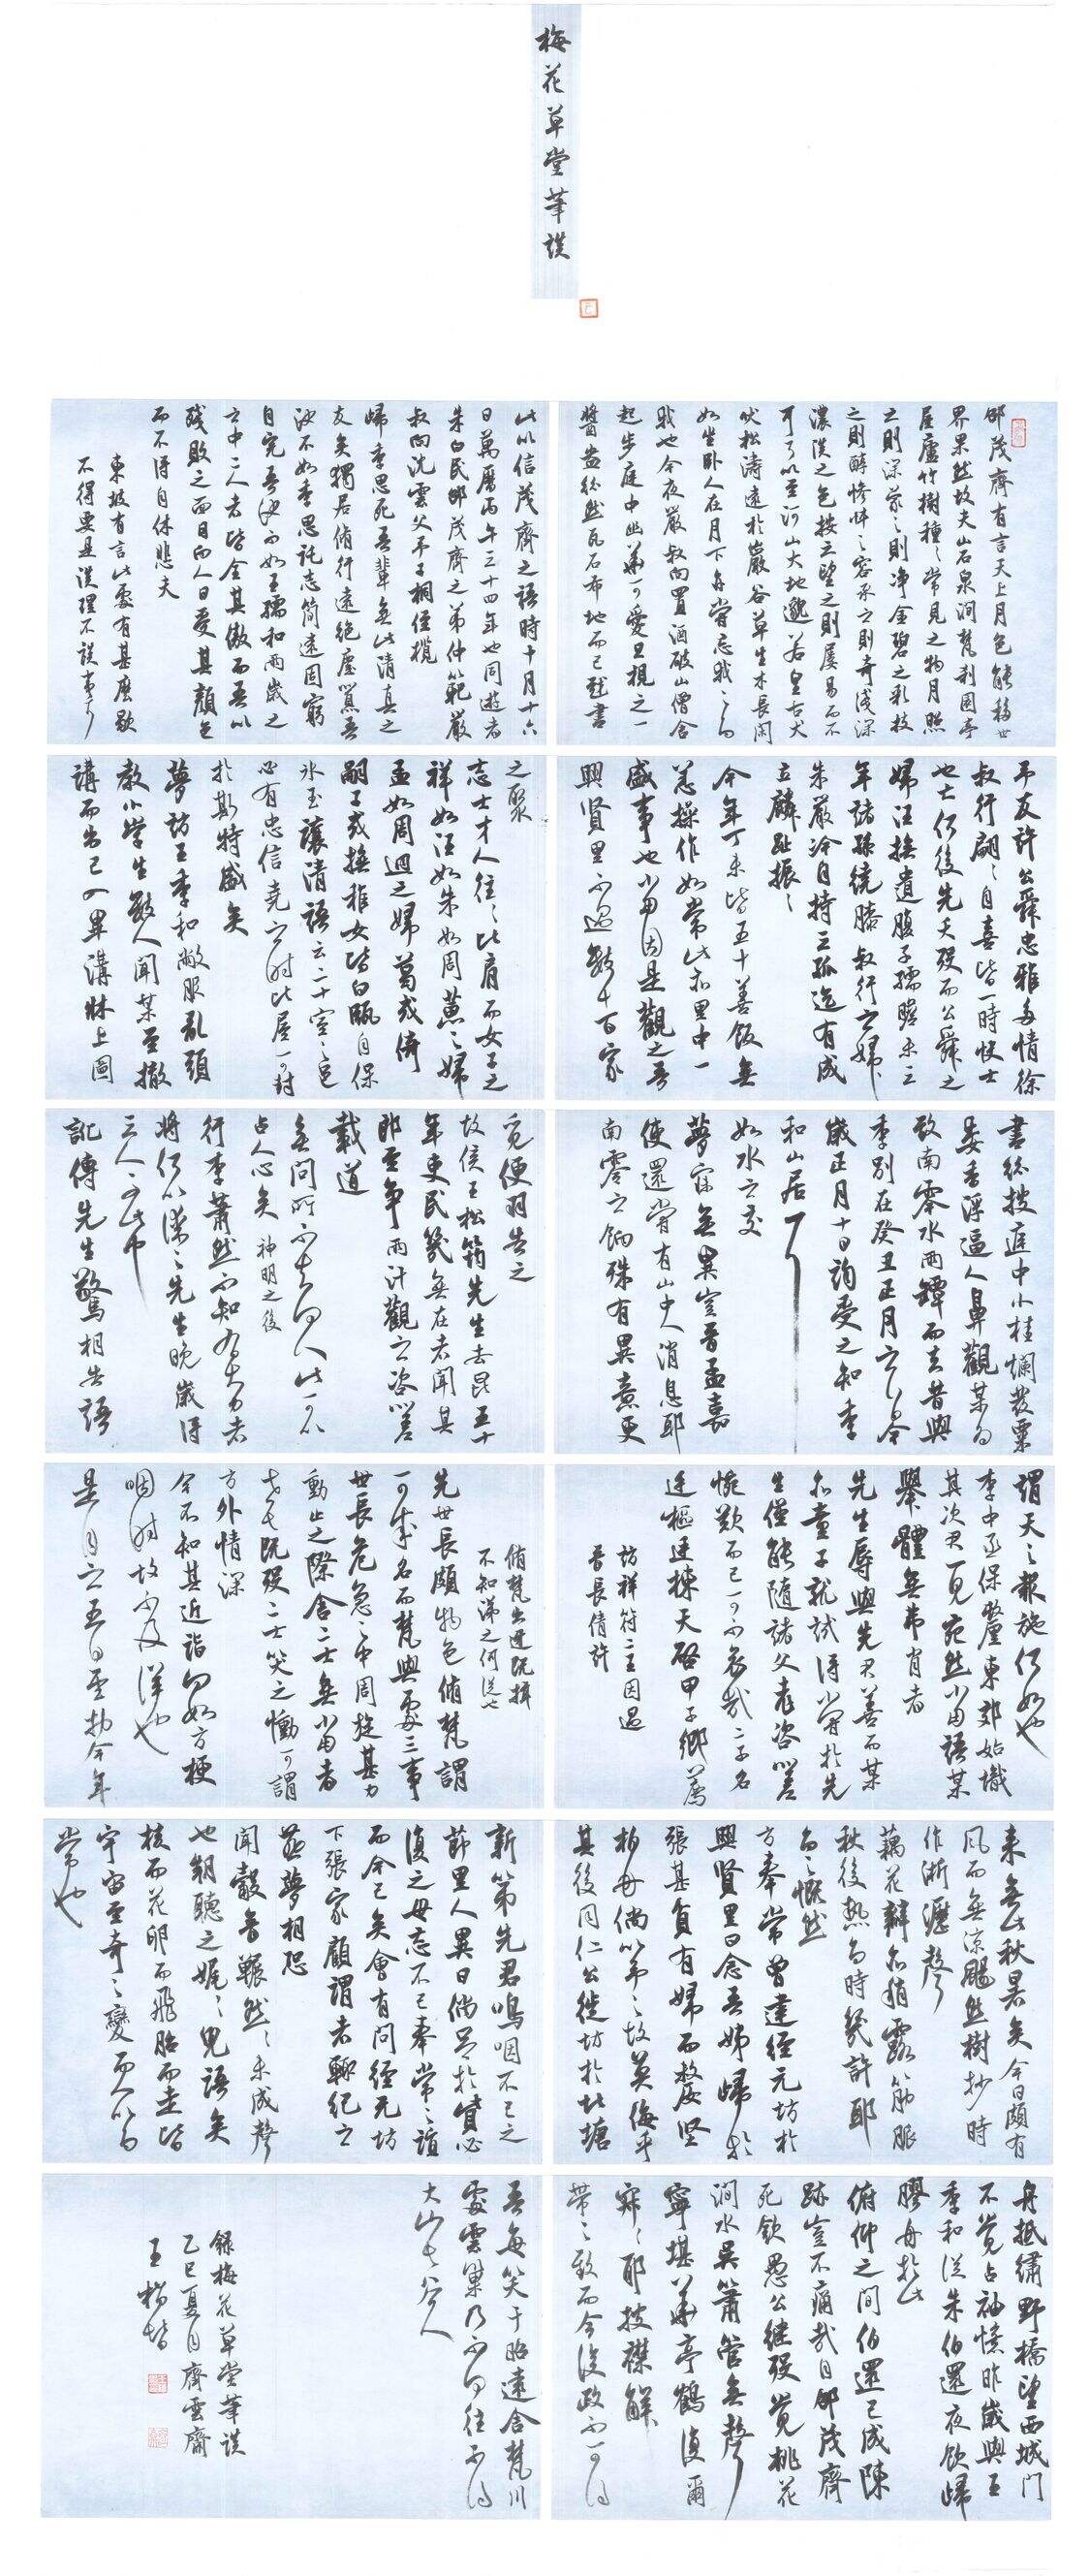 梅花草堂筆談
邵茂齊有言天上月色能移世
界果然故夫山石泉澗梵刹園亭
屋廬竹樹種種常見之物月照
之則深蒙之則淨金碧之彩披
之則醇慘悴之容承之則奇淺深
濃淡之色按之望之則屢易而不
可了以至河山大地邈若皇古犬
吠松濤遠於巖谷草生木長閒
如坐卧人在月下亦嘗忘我之為
我也今夜嚴叔向置酒破山僧舍
起步庭中幽華可愛旦視之一
醬盎紛然瓦石布地而已戲書
此以信茂齊之語時十月十六
日萬曆丙午三十四年也同遊者
朱白民邵茂齊之弟仲範嚴
叔向沈雲父予子桐侄攬
歸季思死吾輩無此清真之
友矣獨居脩行遠絶塵囂吾
汝不如季思託志簡遠固窮
自完吾汝不如王孺和兩嵗之
間中二人者皆全其傲而吾以
殘敗之面目向人日受其顏色
而不得自休悲夫
東坡有言此處有甚麽歇
不得要是漢理不誤事
予友許公舜忠雅多情徐
叔行翩翩自喜皆一時快士
也亡何後先夭殁而公舜之
婦汪撫遺腹子孺
年諸孫繞膝叔行之婦
朱嚴冷自持三孤迄有成
立麟趾振振
今年丁未皆五十善飯無
恙操作如常此亦里中一
盛事也小爾因是觀之吾
興賢里不過數十百家
之聚
志士才人往往比肩而女子之
祥如汪如朱如周黃之婦
孟如周迴之婦葛或倚
嗣子或撫稚女皆白瓯自保
冰玉讓清語云二十室之邑
必有忠信堯之时比屋可封
於斯特盛矣
夢訪王季和敝服亂頭
教小學生數人聞某至撤
講而出已入畢講牀上圖
書紛披庭中小桂爛發粟
晏香浮逼人鼻觀某為
致南零水兩罈而去昔與
季別在癸丑正月之
歲正月十日詢受之知季
和山居
如水之交
夢寐無異豈晉孟嘉
使還嘗有山中人消息耶
南零之餉殊有異意更
覓便羽告之
故侯王松筠先生去昆五十
年吏民幾無在者聞其
郎至爭兩汁觀之咨嗟
載道
無問所不知何人此可以
占人心矣神明之後
行李蕭然不知
將何以湛之先生晚歲得
三人
訛傳先生驚相告語
謂天之報施何如也
李中丞保釐東郊始熾
其次君一見宛然小爾語某
舉體無弗肖者
先生辱與先君善而某
亦童子就試得嘗於先
生僅能隨諸父老咨嗟
惋歎而已可不哀哉二子名
廷樞廷棟天啓甲子鄉薦
坊祥符二王因過
吾長倩許
脩梵出迓既揖
不知涕之何從也
先世長頤物色脩梵謂
可成名而梵與處三事
世長危急之中周旋甚力
動止之際舍二士無小爾者
方外情深
今不知其近詣何如方梗
咽时故不及詳也
是月之五日至抄今年
来無此秋暑矣今日頗有
風而無涼颸然樹抄時
作淅瀝聲
藕花辦亦稍露筋脈
秋後熱為時幾許耶
為之慨然
方奉常曾建經元坊於
興賢里曰念吾姊歸於
張甚貞有婦而嫠堅
柏舟倘以弟之故莫侮乎
其後同仁公徙坊於北塘
新第先君鳴咽不已之
節里人異日倘營於實必
復之毋忘不已奉常之誼
而今已矣會有問經元坊
下張家顧謂者輒紀之
茲夢相恐
聞鷇音輾然之未成聲
也朝聽之娓娓兒語矣
核而花卵而飛胎而走皆
宇宙至奇之變而人以為
常也
舟抵繡野橋望西城門
不覺占袖憶昨歲與王
季和從朱伯還夜飲歸
膠舟於此
俯仰之間伯還已成陳
跡豈不痛哉自邵茂齊
死欽愚公继殁覺桃花
澗水吳簫管無聲
寧堪華亭鶴復爾
寂寂耶披襟解
帶之歡而今後政不可得
吾每笑于昭遠含梵川
處雲巢乃不得往不得
大山長谷人
錄梅花草堂筆談
乙巳夏月齊雲齋
王楷